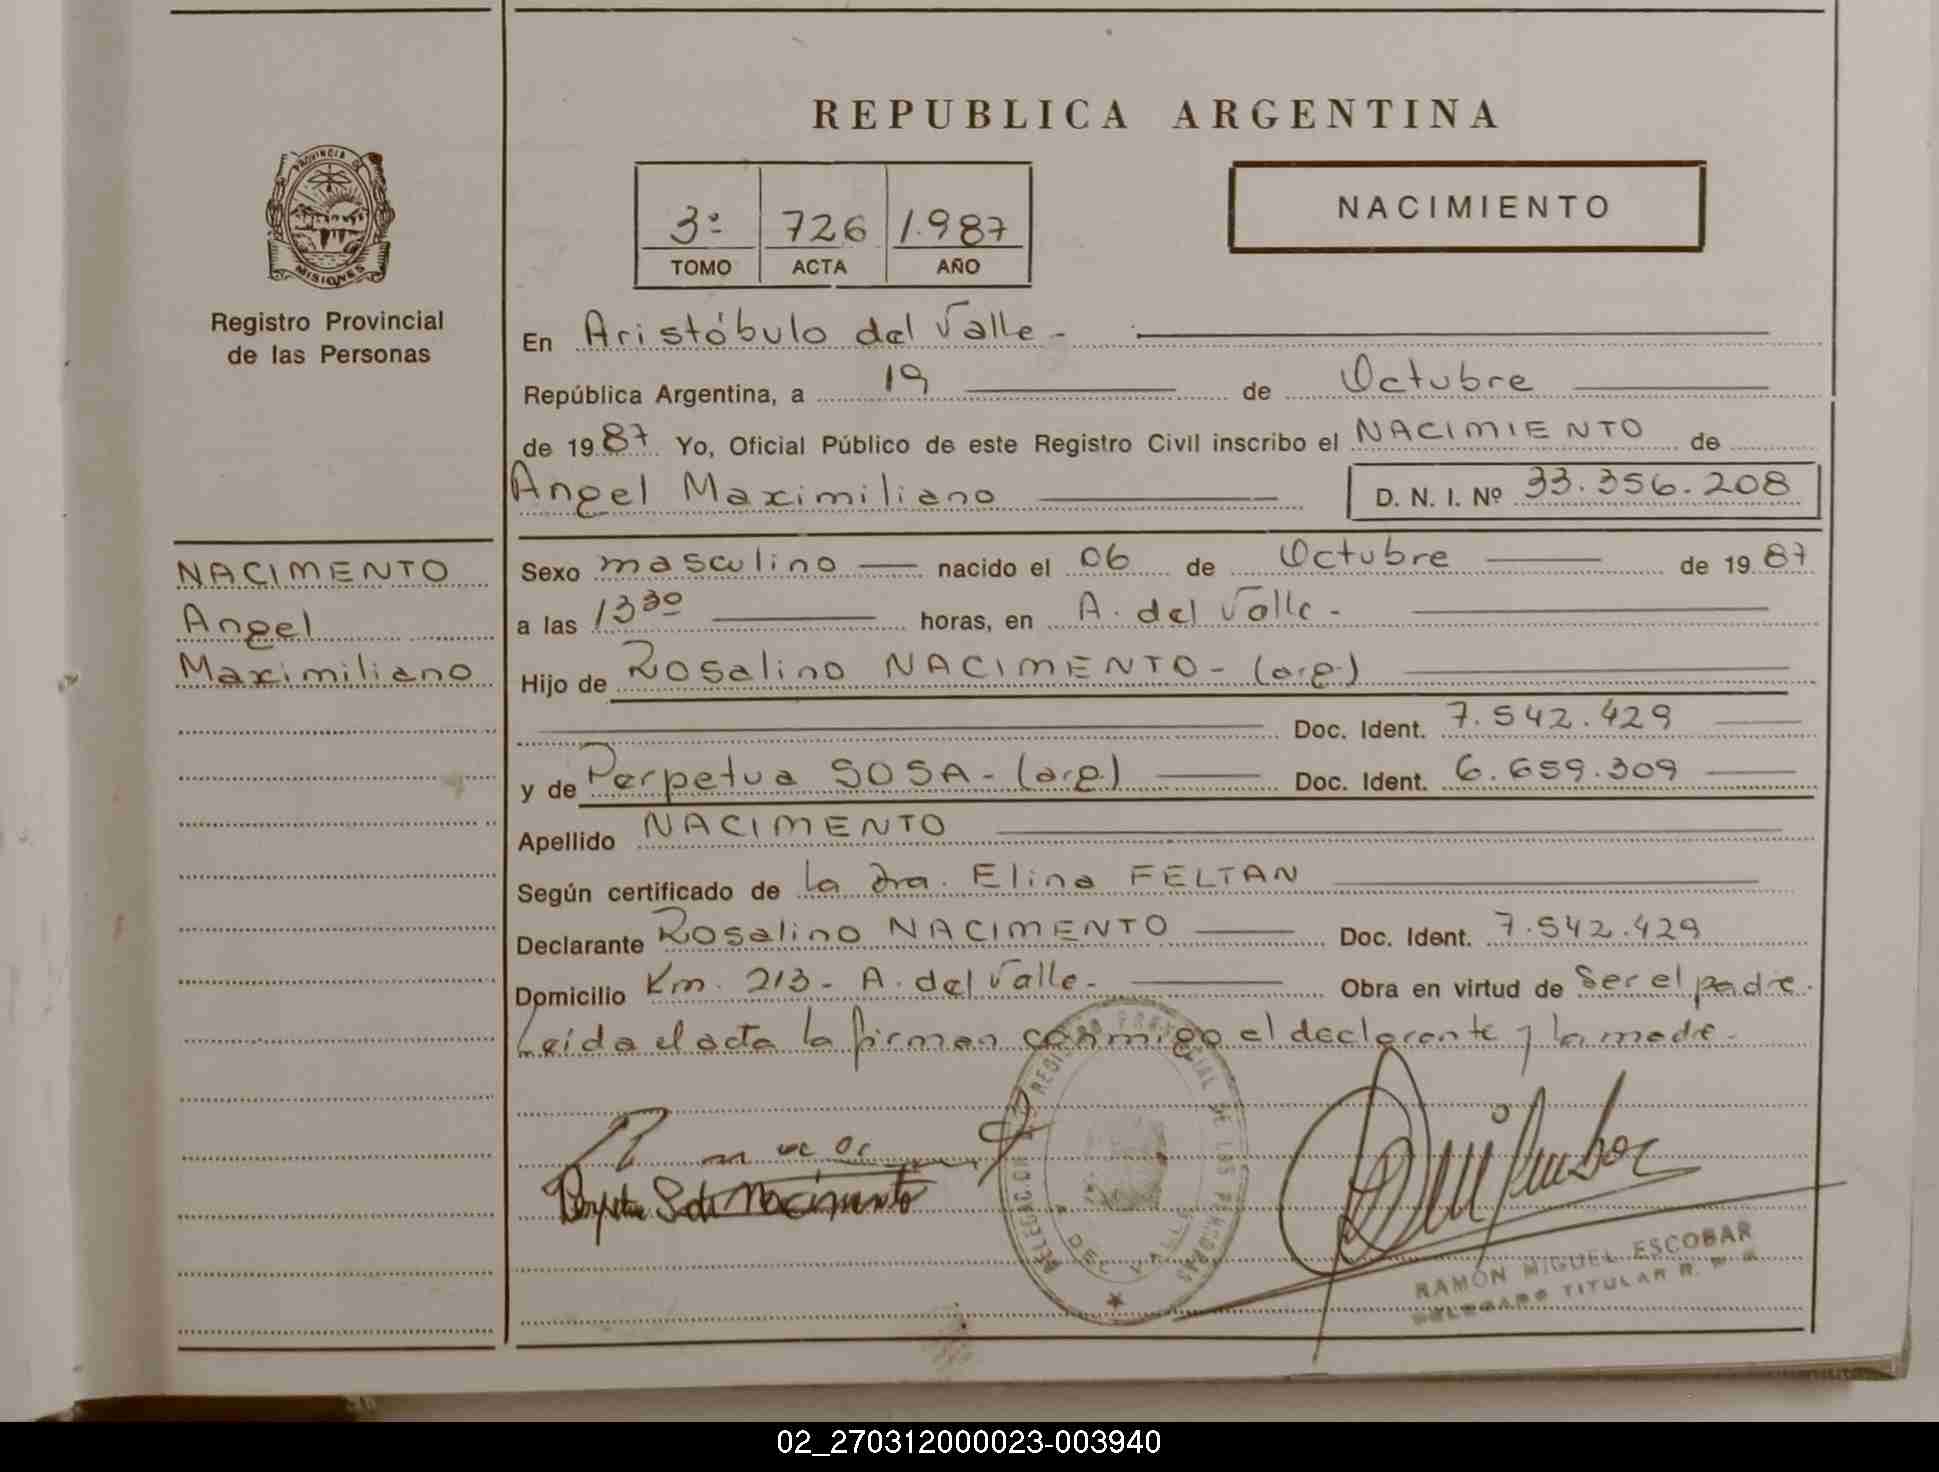 REPUBLICA ARGENTINA
PROVINCIA DE
MISIONES
Registro Provincial
de las Personas
3º 726 1.987
TOMO ACTA AÑO
NACIMIENTO
En Aristóbulo del Valle -
República Argentina, a 19 de Octubre
de 19 87 Yo, Oficial Público de este Registro Civil inscribo el NACIMIENTO de
Angel Maximiliano D. N. I. Nº 33.356.208
NACIMENTO
Angel
Maximiliano
Sexo masculino nacido el 06 de Octubre de 19 87
a las 13 30 horas, en A. del Valle -
Hijo de Rosalino NACIMENTO - (arg.)
Doc. Ident. 7.542.429
y de Perpetua SOSA - (arg.) Doc. Ident. 6.659.309
Apellido NACIMENTO
Según certificado de la Dra. Elina FELTAN
Declarante Rosalino NACIMENTO Doc. Ident. 7.542.429
Domicilio Km. 213 - A. del Valle - Obra en virtud de Ser el padre.
Leída el acta la firman conmigo el declarante y la madre.
DELEGACION REGISTRO PROVINCIAL DE LAS PERSONAS
A. DEL VALLE
Nacimento
RAMÓN MIGUEL ESCOBAR
DELEGADO TITULAR R. P. P.
02_270312000023-003940